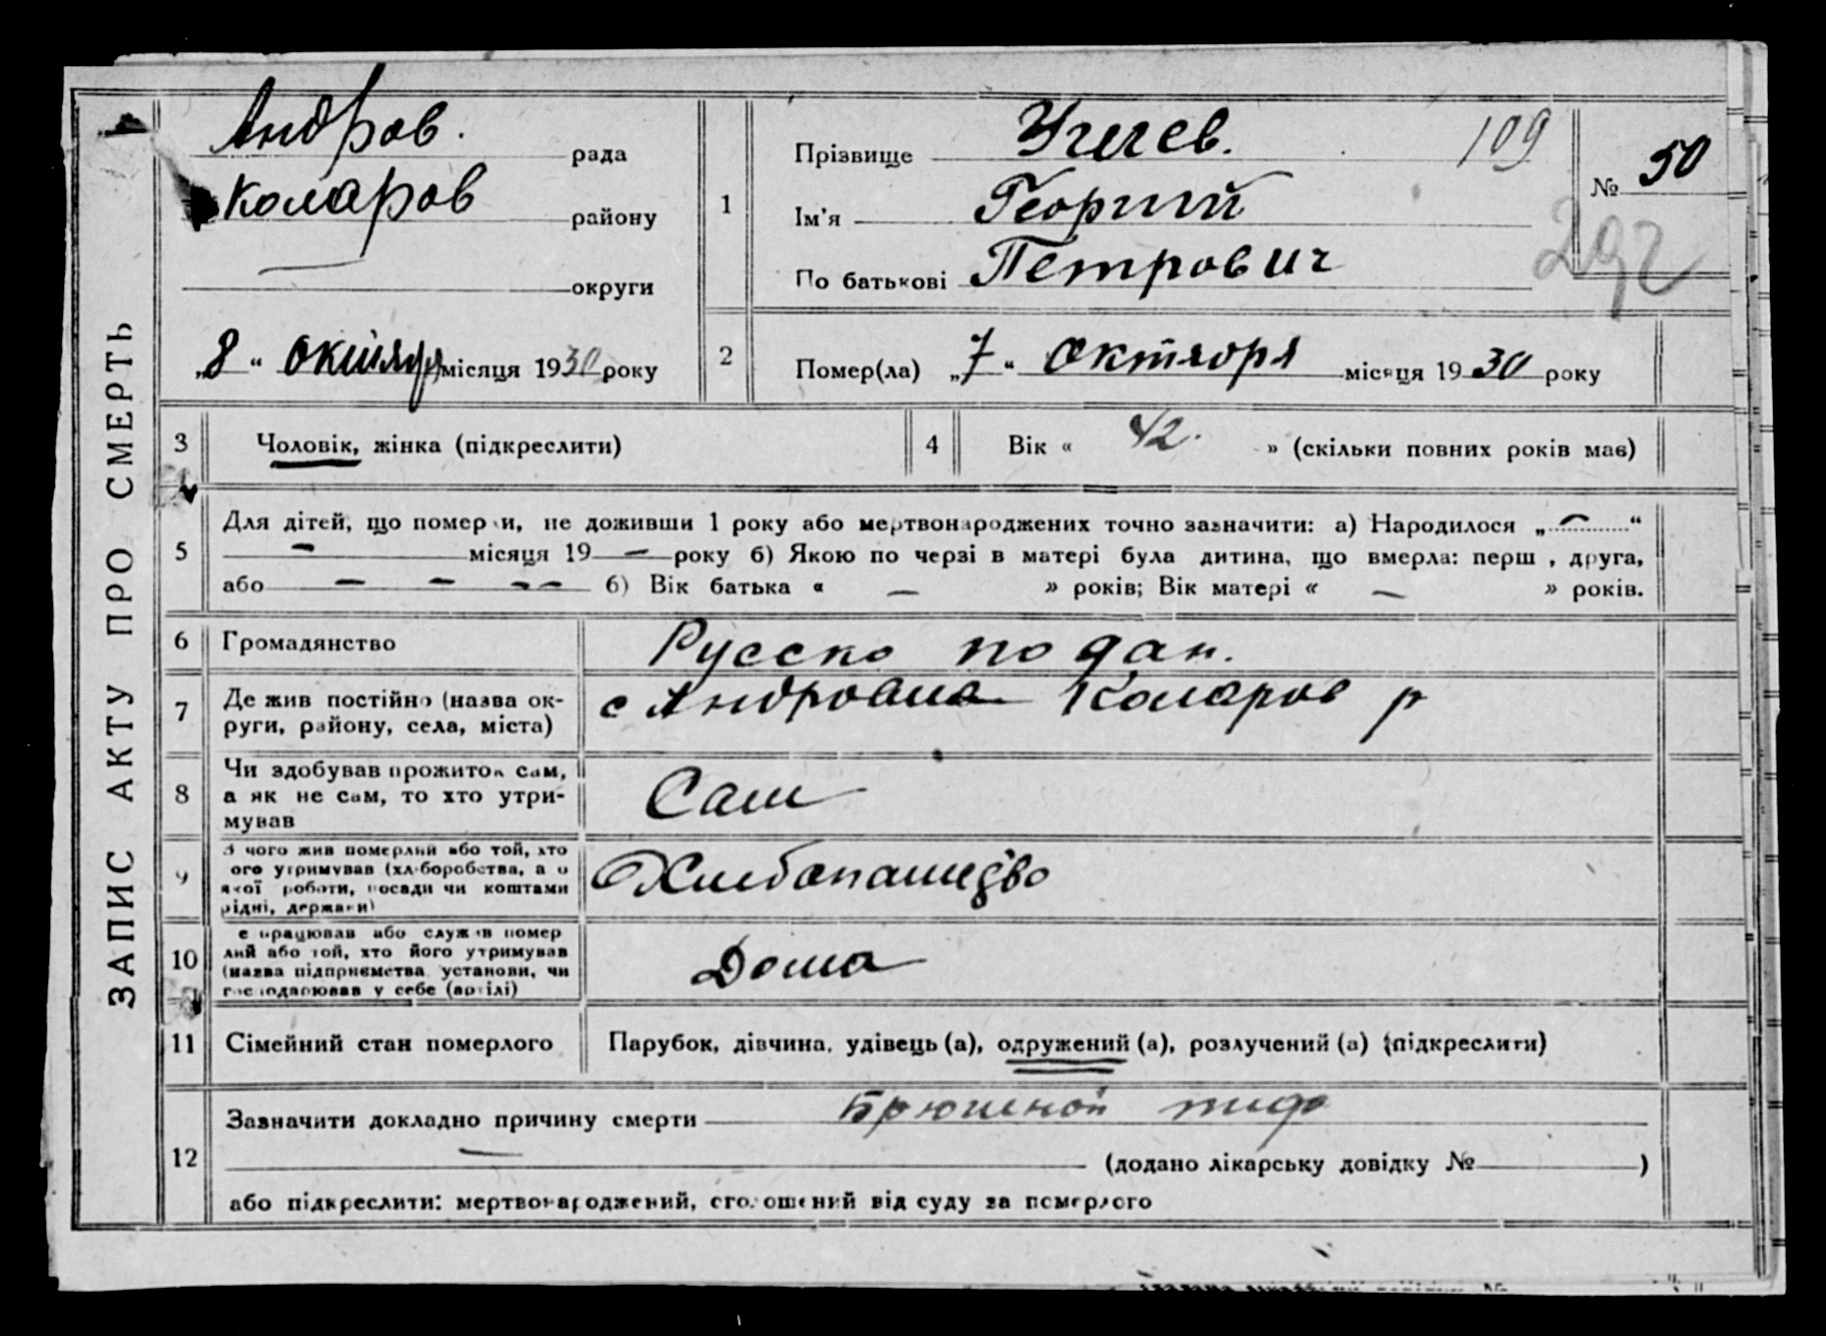 ЗАПИС АКТУ ПРО СМЕРТЬ
Андров. рада
Коларов району
округи
„8“ октября місяця 1930 року
1
Прізвище 109
Ім'я Георгий
По батькові Петрович
№ 50
292
2 Помер(ла) „7“ октября місяця 1930 року
3 Чоловік, жінка (підкреслити)
4 Вік « 42. » (скільки повних років має)
5 Для дітей, що померли, не доживши 1 року або мертвонароджених точно зазначити: а) Народилося „—“
— місяця 19 — року б) Якою по черзі в матері була дитина, що вмерла: перш , друга,
або — — — — б) Вік батька « — » років; Вік матері « — » років.
6 Громадянство Русско подан.
7 Де жив постійно (назва ок-
руги, району, села, міста) с Андровка Коларов р
8 Чи здобував прожиток сам,
а як не сам, то хто утри-
мував Сам
9 З чого жив померлий або той, хто
ого утримував (хліборобства, а о
якої роботи, посади чи коштами
рідні, держави) Хлебопашедво
10 е працював або служив помер
лий або той, хто його утримував
(назва підприємства установи, чи
господарював у себе (артілі) Дома
11 Сімейний стан померлого Парубок, дівчина, удівець (а), одружений (а), розлучений (а) (підкреслити)
12 Зазначити докладно причину смерти Брюшной тиф
— (додано лікарську довідку № )
або підкреслити: мертвонароджений, оголошений від суду за померлого